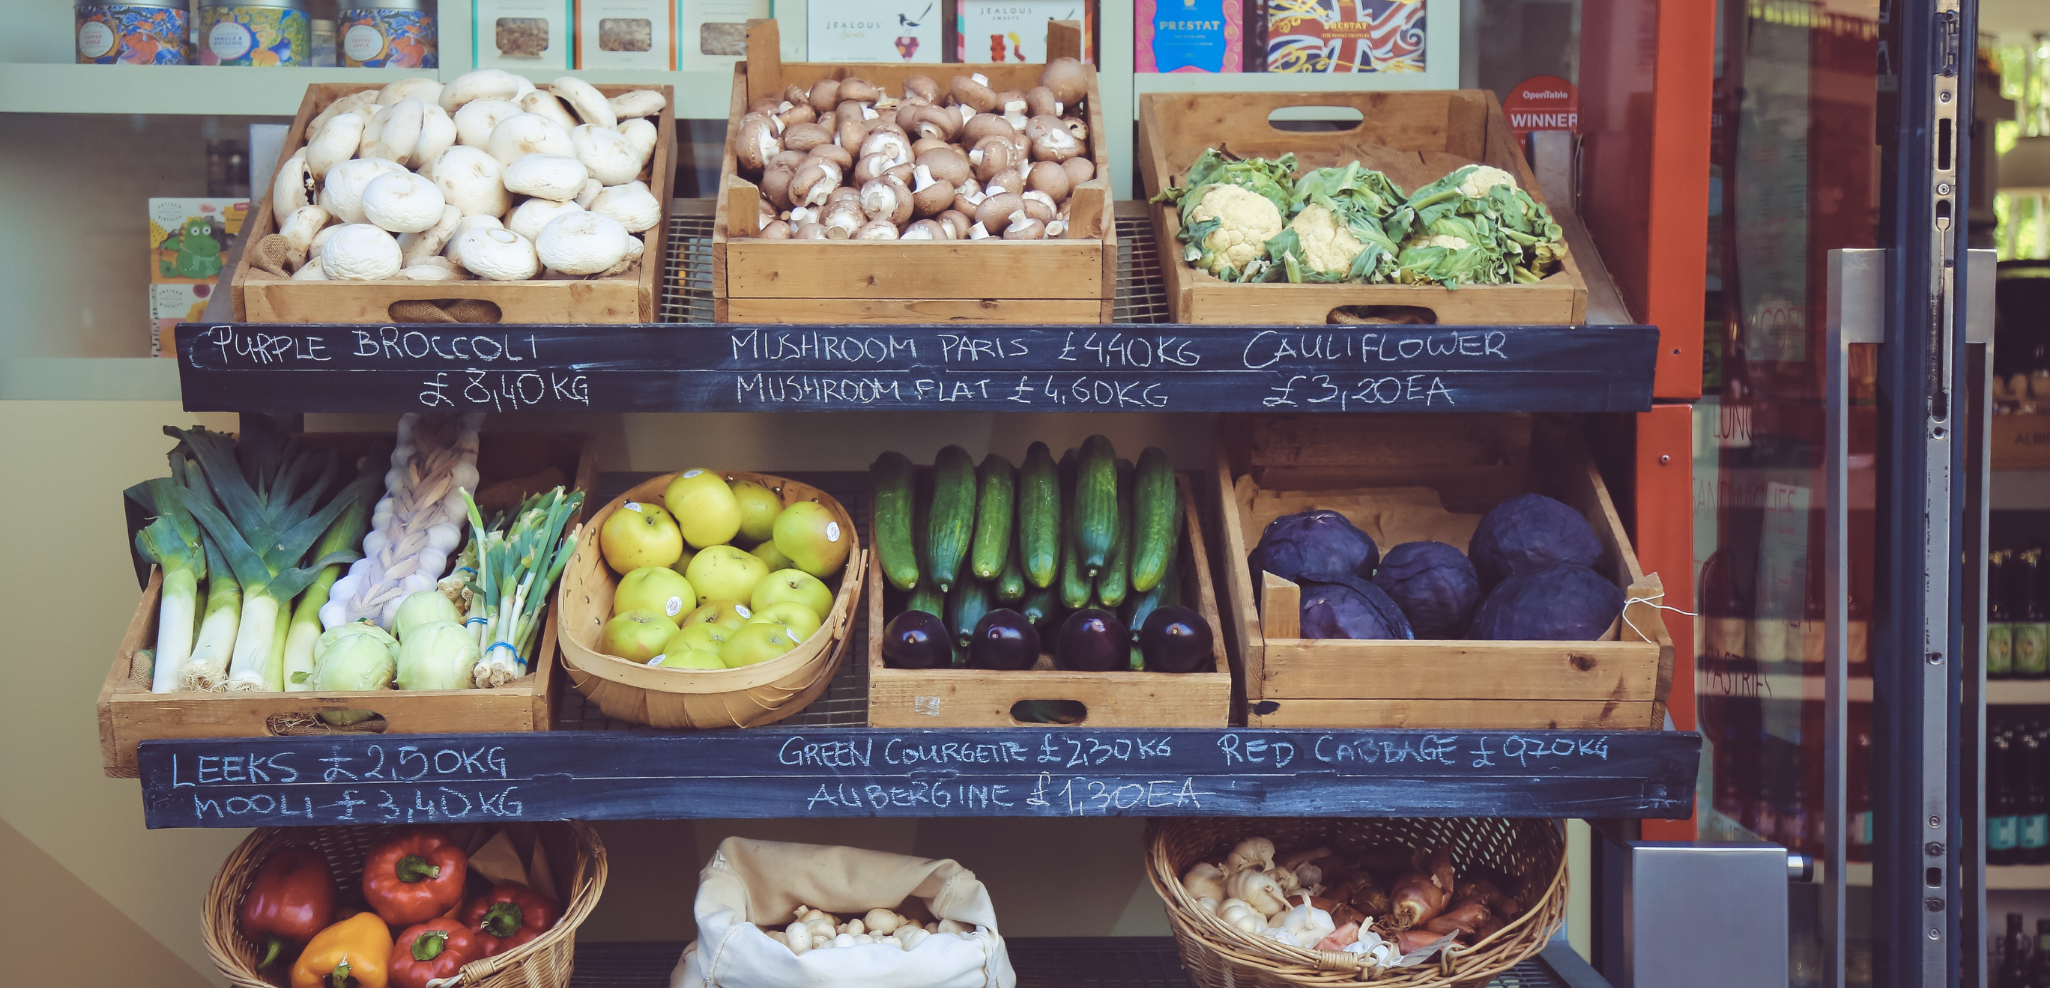 JEALOUS
Sweets
JEALOUS
SWEETS
PRESTAT
PRESTAT
OpenTable
WINNER
PURPLE BROCCOLI
£8,40KG
MUSHROOM PARIS £4,40KG
MUSHROOM FLAT £4,60KG
CAULIFLOWER
£3,20EA
LEEKS £2,50KG
MOOLI £3,40KG
GREEN COURGETTE £2,30KG
AUBERGINE £1,30EA
RED CABBAGE £0,20KG
PASTRIES